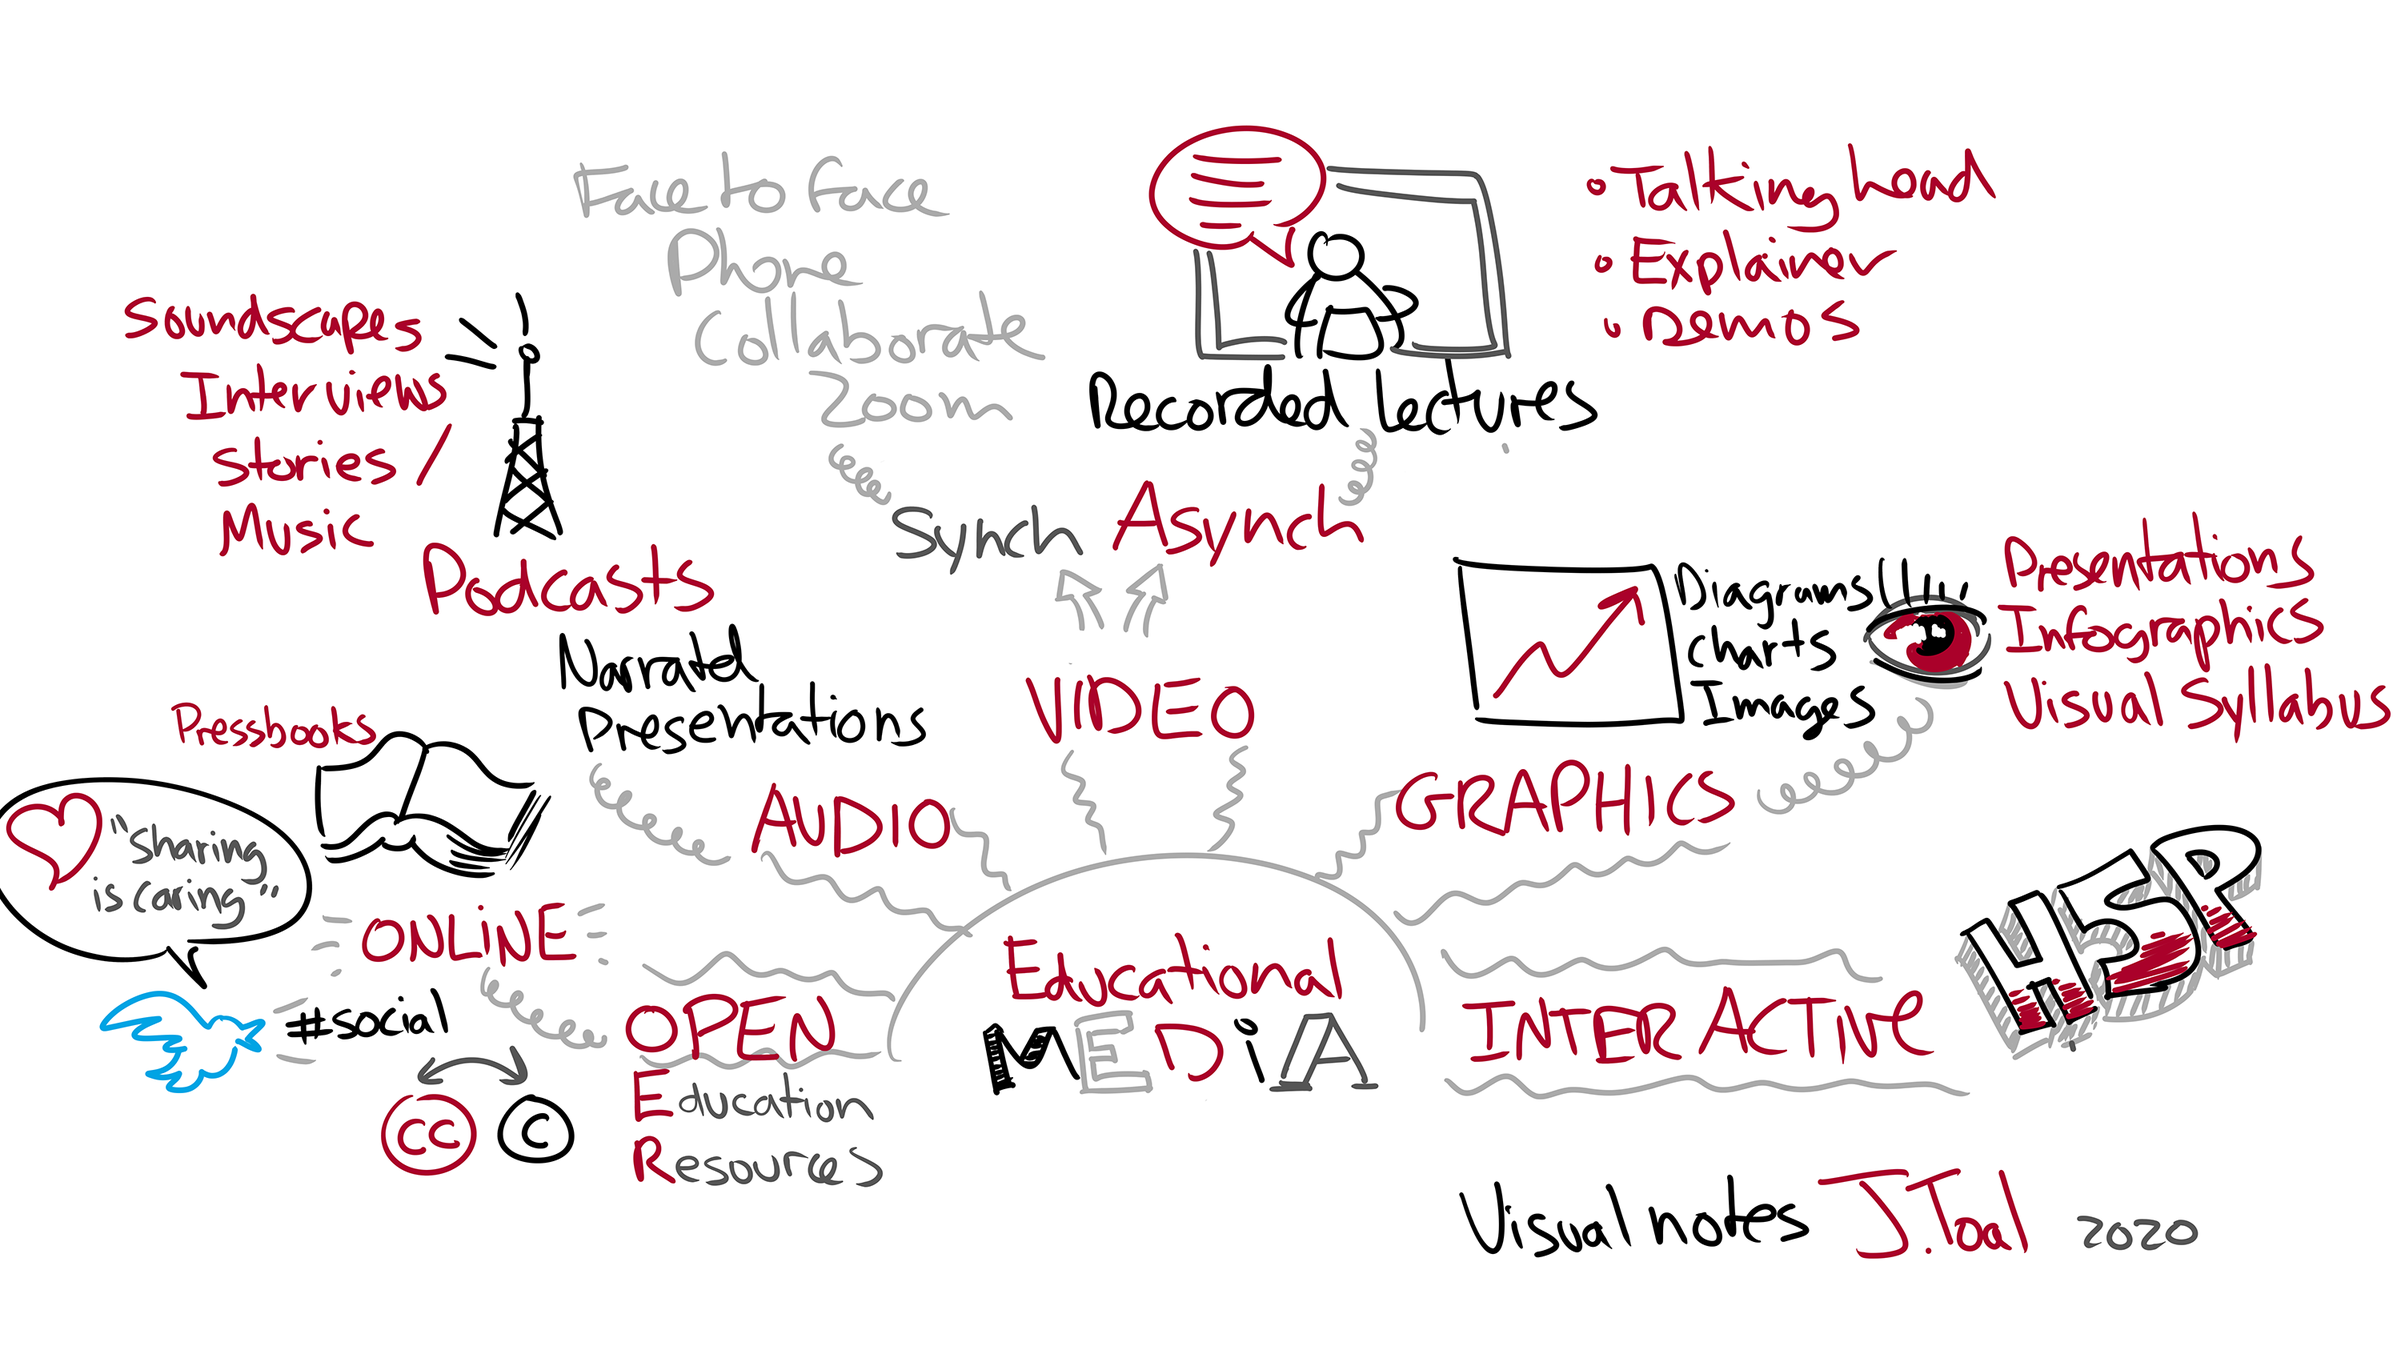 Face to face
Phone
Collaborate
Zoom
Recorded lectures
Talking head
Explainer
Demos
Synch Asynch
VIDEO
Soundscapes
Interviews
Stories /
Music
Podcasts
Narrated
Presentations
AUDIO
Diagrams
charts
Images
Presentations
Infographics
Visual Syllabus
GRAPHICS
Pressbooks
"sharing
is caring"
ONLINE
#social
CC C
OPEN
Education
Resources
Educational
MEDiA
INTERACTIVE
H5P
Visual notes J.Toal 2020